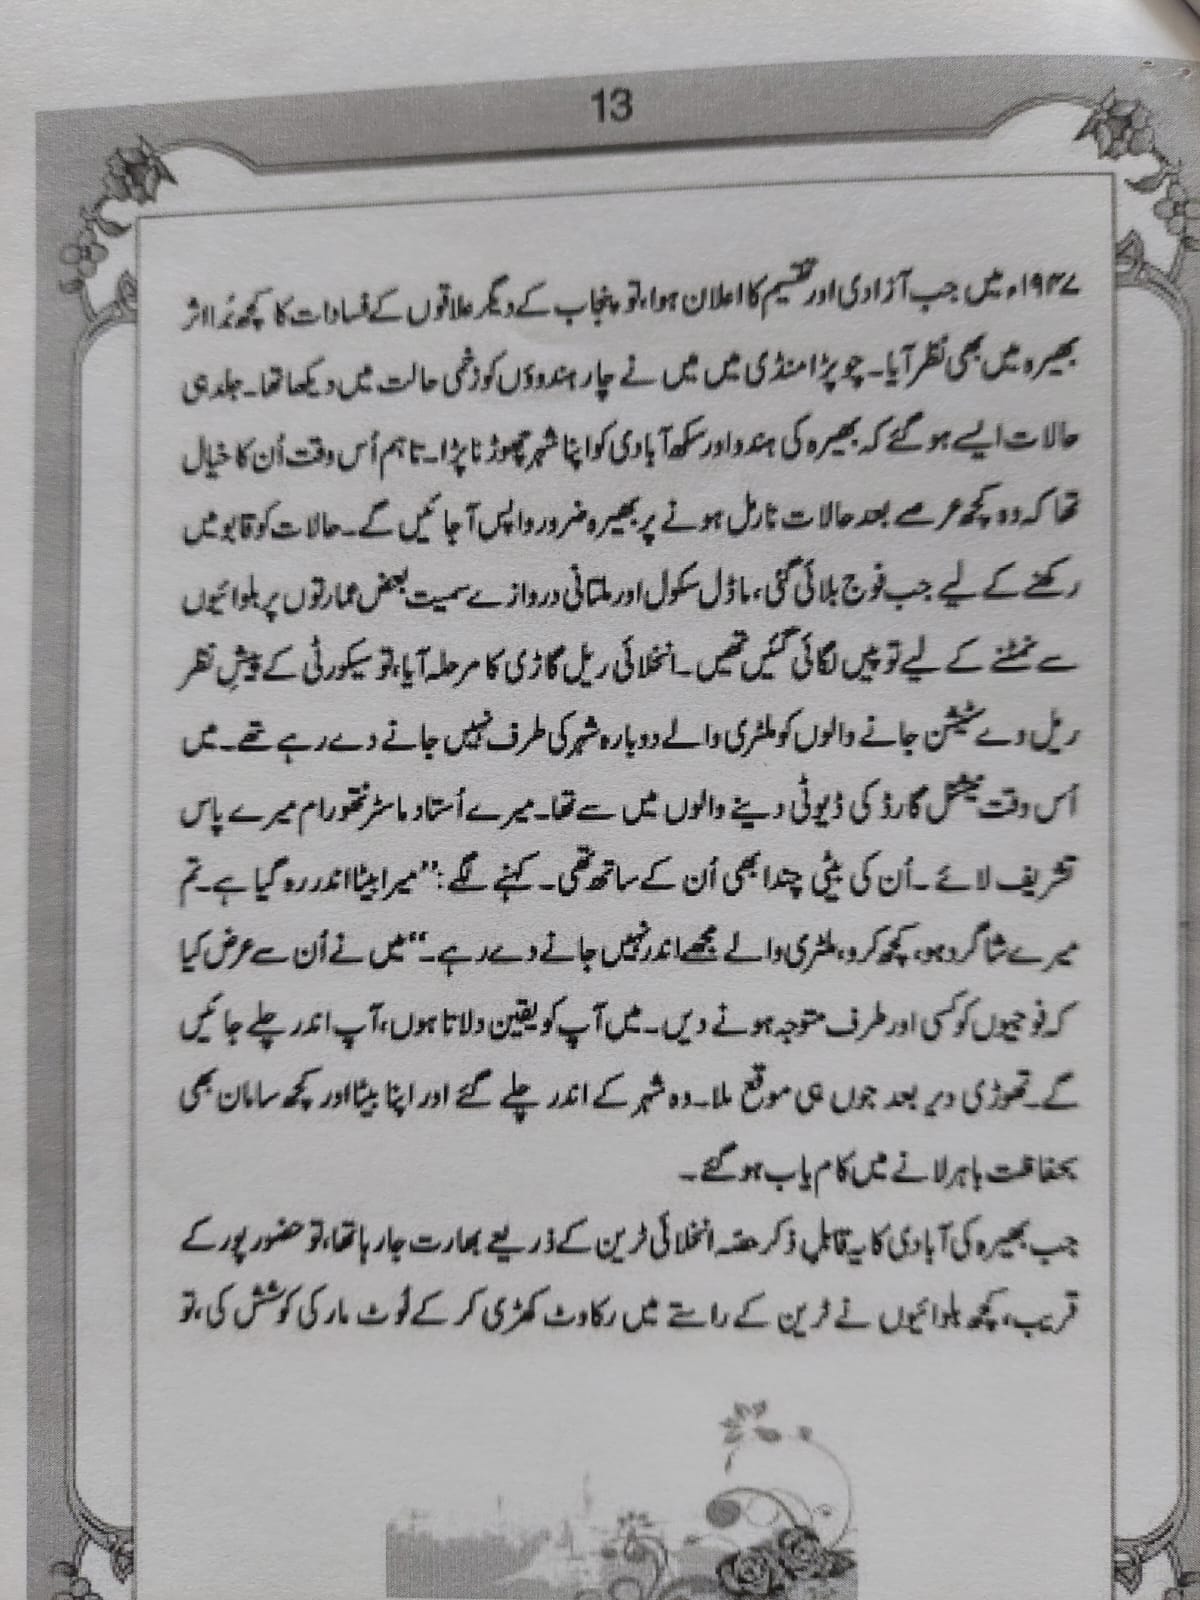 13
۱۹۴۷ء میں جب آزادی اور تقسیم کا اعلان ہوا، تو پنجاب کے دیگر علاقوں کے فسادات کا کچھ بُرا اثر
بھیرہ میں بھی نظر آیا۔ چوپڑا منڈی میں میں نے چار ہندوؤں کو زخمی حالت میں دیکھا تھا۔ جلد ہی
حالات ایسے ہو گئے کہ بھیرہ کی ہندو اور سکھ آبادی کو اپنا شہر چھوڑنا پڑا۔ تاہم اُس وقت اُن کا خیال
تھا کہ وہ کچھ عرصے بعد حالات نارمل ہونے پر بھیرہ ضرور واپس آ جائیں گے۔ حالات کو قابو میں
رکھنے کے لیے جب فوج بلائی گئی، ماڈل سکول اور ملتانی دروازے سمیت بعض عمارتوں پر بلوائیوں
سے نمٹنے کے لیے توپیں لگائی گئیں تھیں۔ انخلائی ریل گاڑی کا مرحلہ آیا، تو سیکورٹی کے پیشِ نظر
ریل وے سٹیشن جانے والوں کو ملٹری والے دوبارہ شہر کی طرف نہیں جانے دے رہے تھے۔ میں
اُس وقت نیشنل گارڈ کی ڈیوٹی دینے والوں میں سے تھا۔ میرے اُستاد ماسٹر نتھو رام میرے پاس
تشریف لائے۔ اُن کی بیٹی چندا بھی اُن کے ساتھ تھی۔ کہنے لگے: ”میرا بیٹا اندر رہ گیا ہے۔ تم
میرے شاگرد ہو، کچھ کرو، ملٹری والے مجھے اندر نہیں جانے دے رہے۔“ میں نے اُن سے عرض کیا
کہ فوجیوں کو کسی اور طرف متوجہ ہونے دیں۔ میں آپ کو یقین دلاتا ہوں، آپ اندر چلے جائیں
گے۔ تھوڑی دیر بعد جوں ہی موقع ملا۔ وہ شہر کے اندر چلے گئے اور اپنا بیٹا اور کچھ سامان بھی
بحفاظت باہر لانے میں کام یاب ہو گئے۔
جب بھیرہ کی آبادی کا یہ قابلِ ذکر حصّہ انخلائی ٹرین کے ذریعے بھارت جا رہا تھا، تو حضور پور کے
قریب، کچھ بلوائیوں نے ٹرین کے راستے میں رکاوٹ کھڑی کر کے لُوٹ مار کی کوشش کی، تو